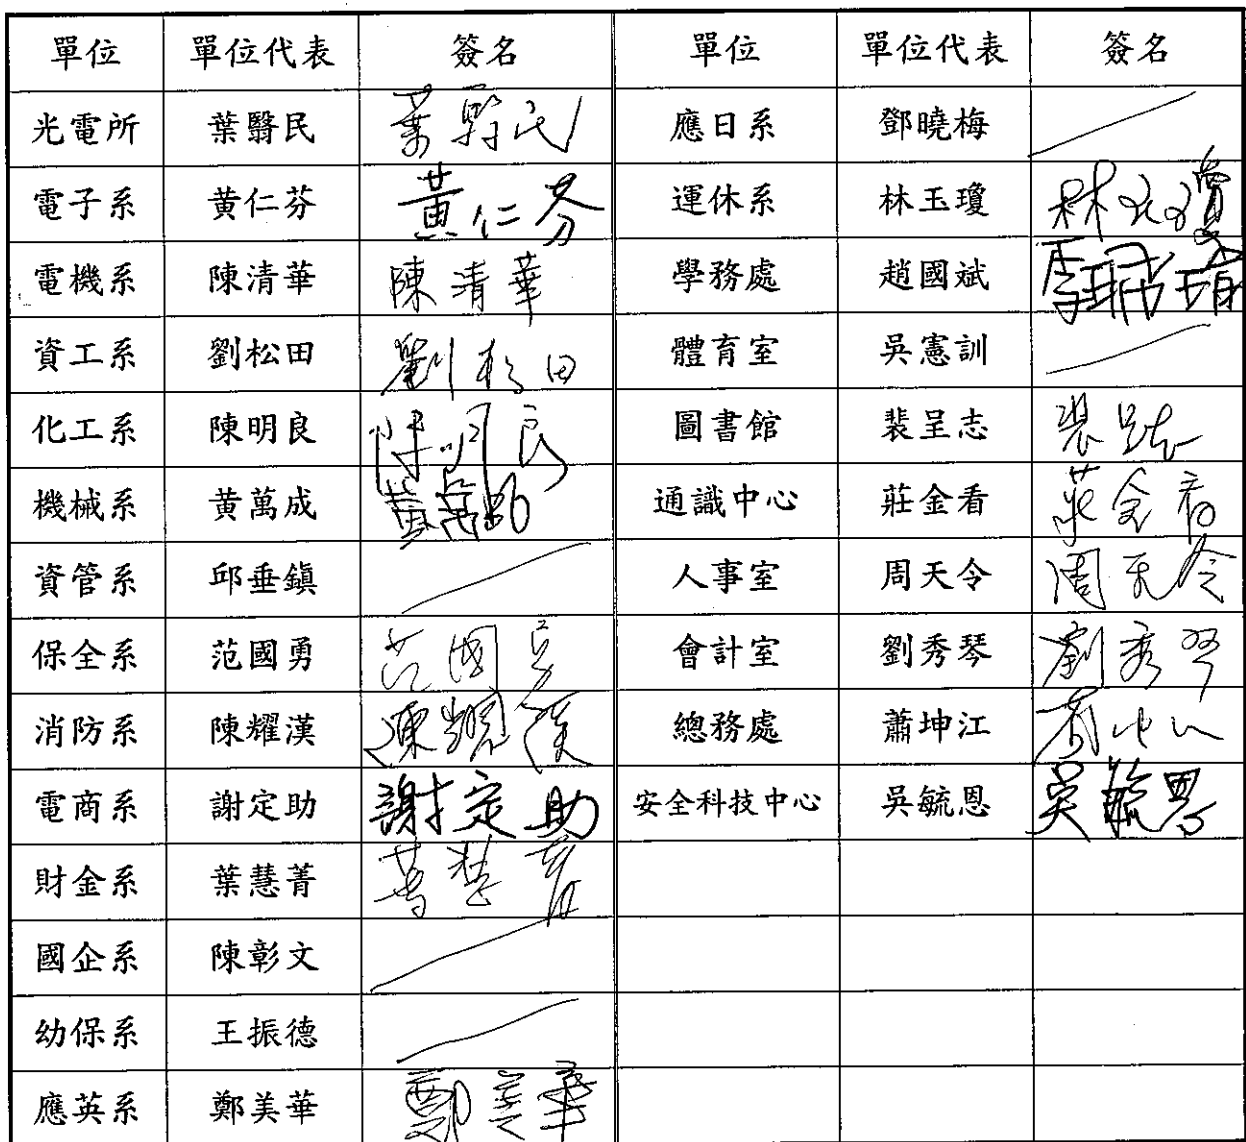 單位 單位代表 簽名 單位 單位代表 簽名
光電所 葉翳民 葉翳民 應日系 鄧曉梅
電子系 黃仁芬 黃仁芬 運休系 林玉瓊 林玉瓊
電機系 陳清華 陳清華 學務處 趙國斌
資工系 劉松田 劉松田 體育室 吳憲訓
化工系 陳明良 陳明良 圖書館 裴呈志
機械系 黃萬成 通識中心 莊金看 莊金看
資管系 邱垂鎮 人事室 周天令 周天令
保全系 范國勇 范國勇 會計室 劉秀琴 劉秀琴
消防系 陳耀漢 陳耀漢 總務處 蕭坤江
電商系 謝定助 謝定助 安全科技中心 吳毓恩 吳毓恩
財金系 葉慧菁 葉慧菁
國企系 陳彰文
幼保系 王振德
應英系 鄭美華 鄭美華